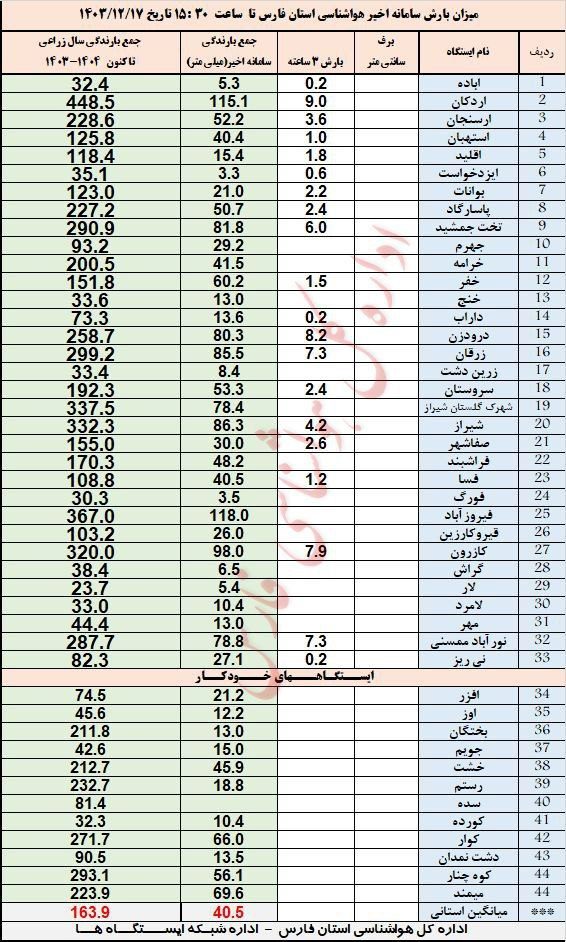 میزان بارش سامانه اخیر هواشناسی استان فارس تا ساعت ۳۰ :۱۵ تاریخ ۱۴۰۳/۱۲/۱۷
ردیف نام ایستگاه برف سانتی متر بارش ۳ ساعته جمع بارندگی سامانه اخیر(میلی متر) جمع بارندگی سال زراعی تا کنون ۱۴۰۴-۱۴۰۳
1 اباده 0.2 5.3 32.4
2 اردکان 9.0 115.1 448.5
3 ارسنجان 3.6 52.2 228.6
4 استهبان 1.0 40.4 125.8
5 اقلید 1.8 15.4 118.4
6 ایزدخواست 0.6 3.3 35.1
7 بوانات 2.2 21.0 123.0
8 پاسارگاد 2.4 50.7 227.2
9 تخت جمشید 6.0 81.8 290.9
10 جهرم 29.2 93.2
11 خرامه 41.5 200.5
12 خفر 1.5 60.2 151.8
13 خنج 13.0 33.6
14 داراب 0.2 13.6 73.3
15 درودزن 8.2 80.3 258.7
16 زرقان 7.3 85.5 299.2
17 زرین دشت 8.4 33.4
18 سروستان 2.4 53.3 192.3
19 شهرک گلستان شیراز 78.4 337.5
20 شیراز 4.2 86.3 332.3
21 صفاشهر 2.6 30.0 155.0
22 فراشبند 48.2 170.3
23 فسا 1.2 40.5 108.8
24 فورگ 3.5 30.3
25 فیروز آباد 118.0 367.0
26 قیروکارزین 26.0 103.2
27 کازرون 7.9 98.0 320.0
28 گراش 6.5 38.4
29 لار 5.4 23.7
30 لامرد 10.4 33.0
31 مهر 13.0 44.4
32 نور آباد ممسنی 7.3 78.8 287.7
33 نی ریز 0.2 27.1 82.3
ایستگاههای خودکار
34 افزر 21.2 74.5
35 اوز 12.2 45.6
36 بختگان 13.0 211.8
37 جویم 15.0 42.6
38 خشت 45.9 212.7
39 رستم 18.8 232.7
40 سده 81.4
41 کورده 10.4 32.3
42 کوار 66.0 271.7
43 دشت نمدان 13.5 90.5
44 کوه چنار 56.1 293.1
44 میمند 69.6 223.9
*** میانگین استانی 40.5 163.9
اداره کل هواشناسی استان فارس - اداره شبکه ایستگاه ها
اداره کل هواشناسی فارس